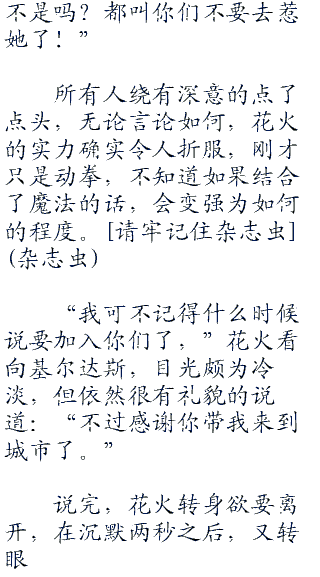 不是吗？都叫你们不要去惹
她了！”
所有人绕有深意的点了
点头，无论言论如何，花火
的实力确实令人折服，刚才
只是动拳，不知道如果结合
了魔法的话，会变强为如何
的程度。[请牢记住杂志虫]
(杂志虫)
“我可不记得什么时候
说要加入你们了，”花火看
向基尔达斯，目光颇为冷
淡，但依然很有礼貌的说
道：“不过感谢你带我来到
城市了。”
说完，花火转身欲要离
开，在沉默两秒之后，又转
眼